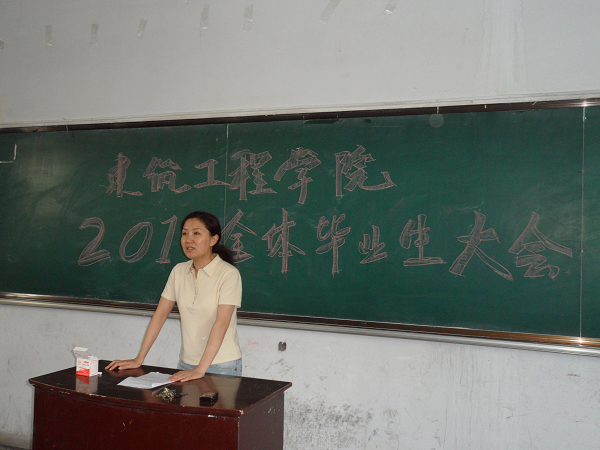 建筑工程学院
201 全体毕业生大会